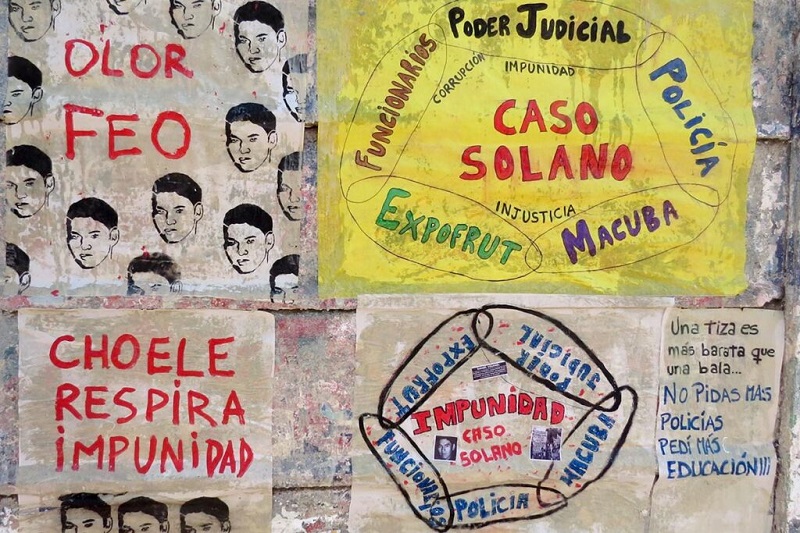 OLOR
FEO
PODER JUDICIAL
FUNCIONARIOS
CORRUPCIÓN
IMPUNIDAD
POLICÍA
CASO
SOLANO
INJUSTICIA
EXPOFRUT
MACUBA
CHOELE
RESPIRA
IMPUNIDAD
EXPOFRUT
PODER
JUDICIAL
IMPUNIDAD
CASO
SOLANO
MACUBA
FUNCIONARIOS
POLICIA
Una tiza es
más barata que
una bala...
NO PIDAS MÁS
POLICÍAS
PEDÍ MÁS
EDUCACIÓN!!!